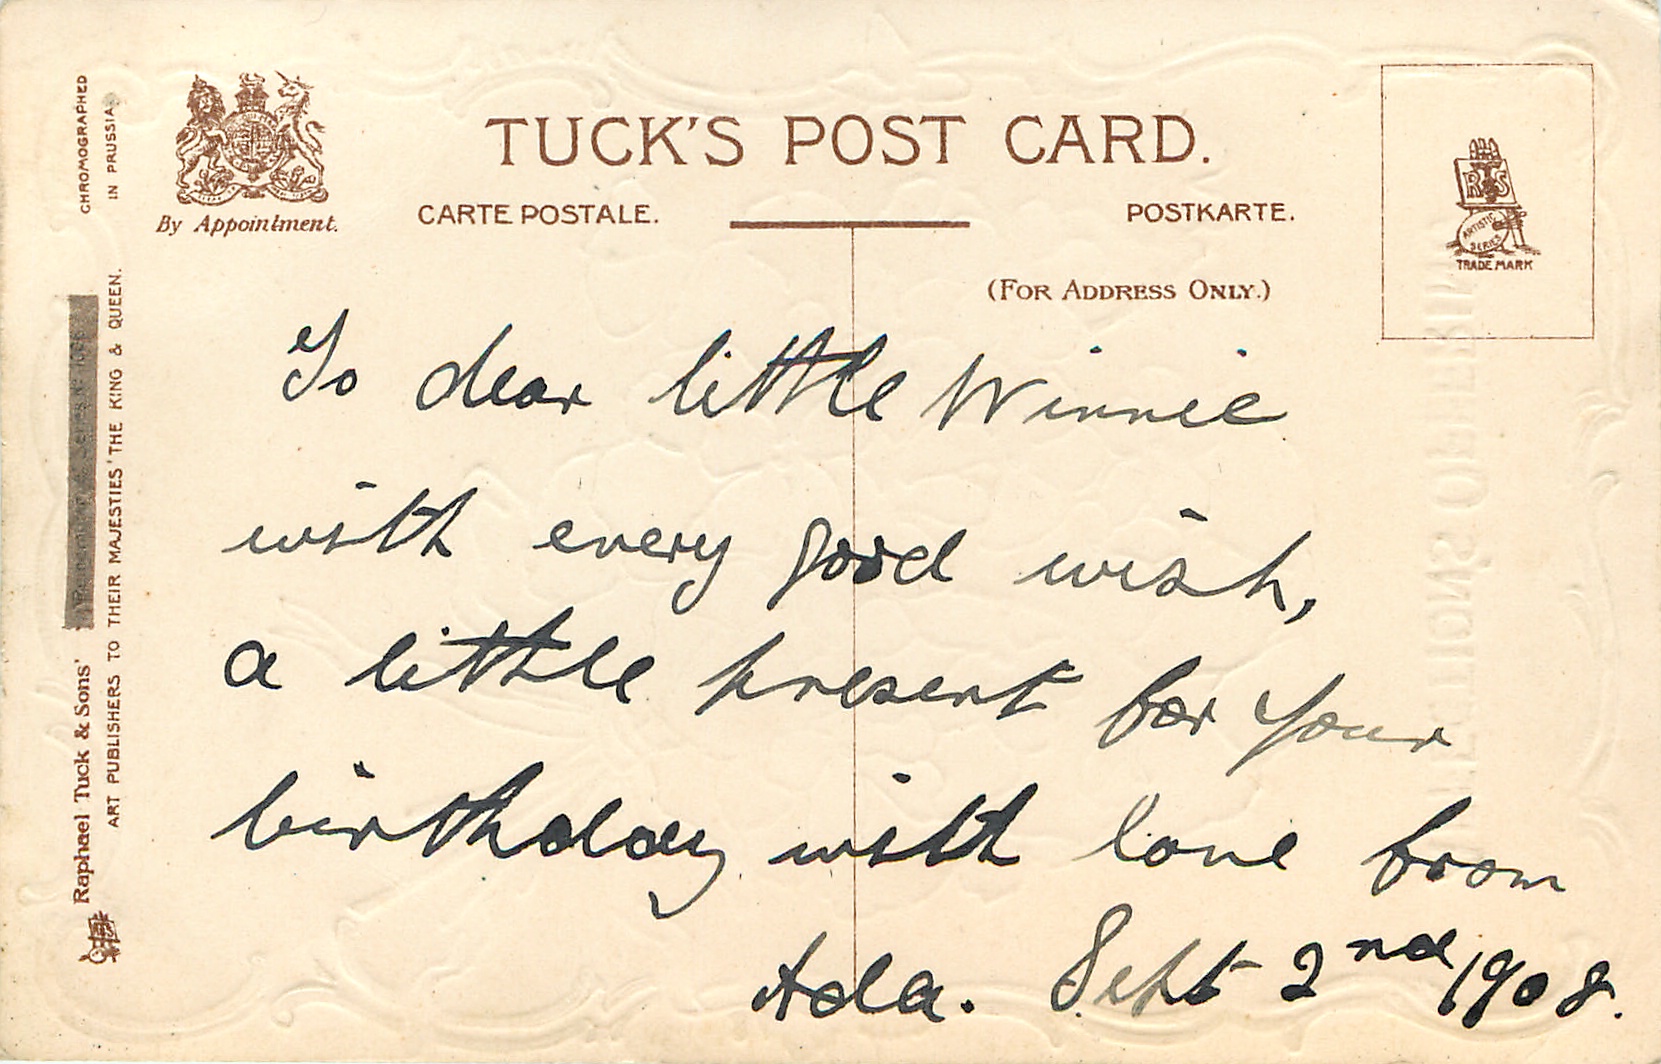 CHROMOGRAPHED
IN PRUSSIA.
By Appointment.
TUCK'S POST CARD.
CARTE POSTALE.
POSTKARTE.
(FOR ADDRESS ONLY.)
R T S
ARTISTIC
SERIES
TRADE MARK
Raphael Tuck & Sons'
ART PUBLISHERS TO THEIR MAJESTIES THE KING & QUEEN.
To dear little Winnie
with every good wish,
a little present for your
birthday with love from
Ada. Sept 2nd 1908.